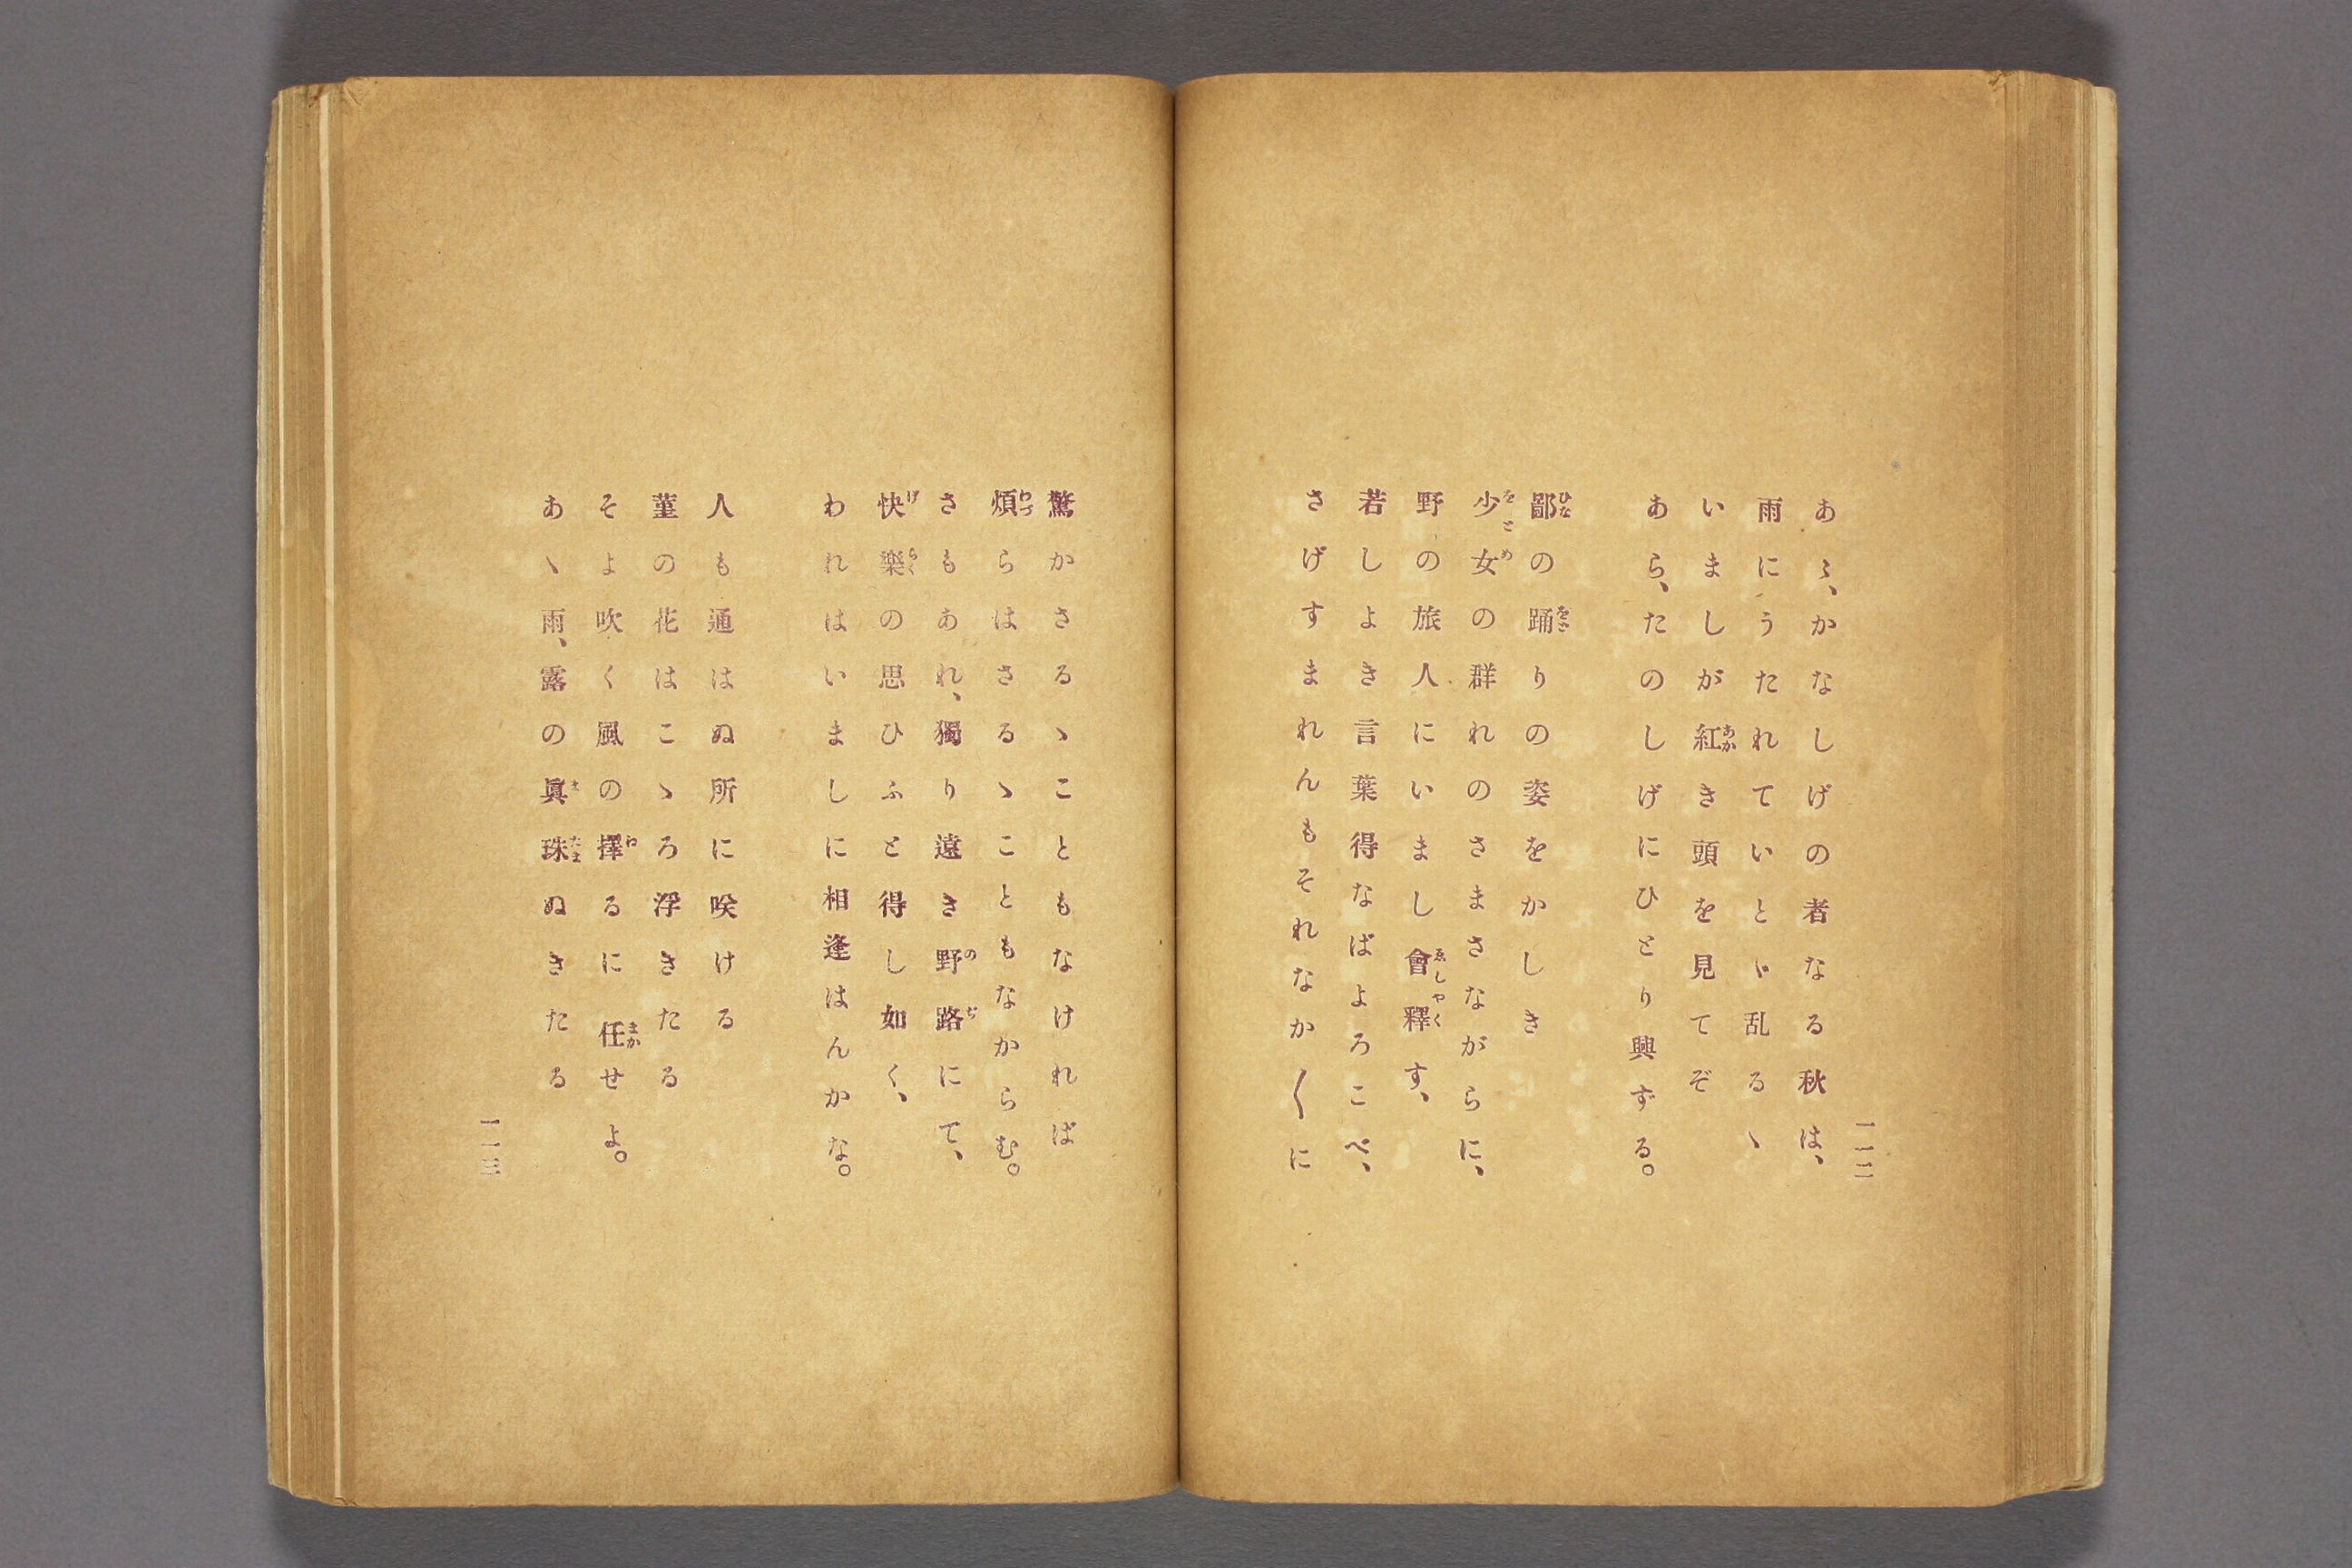 一一二
あゝ、かなしげの者なる秋は、
雨にうたれていとゞ乱るゝ
いましが紅き頭を見てぞ
あら、たのしげにひとり興ずる。
鄙の踊りの姿をかしき
少女の群れのさまさながらに、
野の旅人にいまし會釋す、
若しよき言葉得なばよろこべ、
さげすまれんもそれなか〱に
驚かさるゝこともなければ
煩らはさるゝこともなからむ。
さもあれ、獨り遠き野路にて、
快樂の思ひふと得し如く、
われはいましに相逢はんかな。
人も通はぬ所に咲ける
菫の花はこゝろ浮きたる
そよ吹く風の擇るに任せよ。
あゝ雨、露の眞珠ぬきたる
一一三